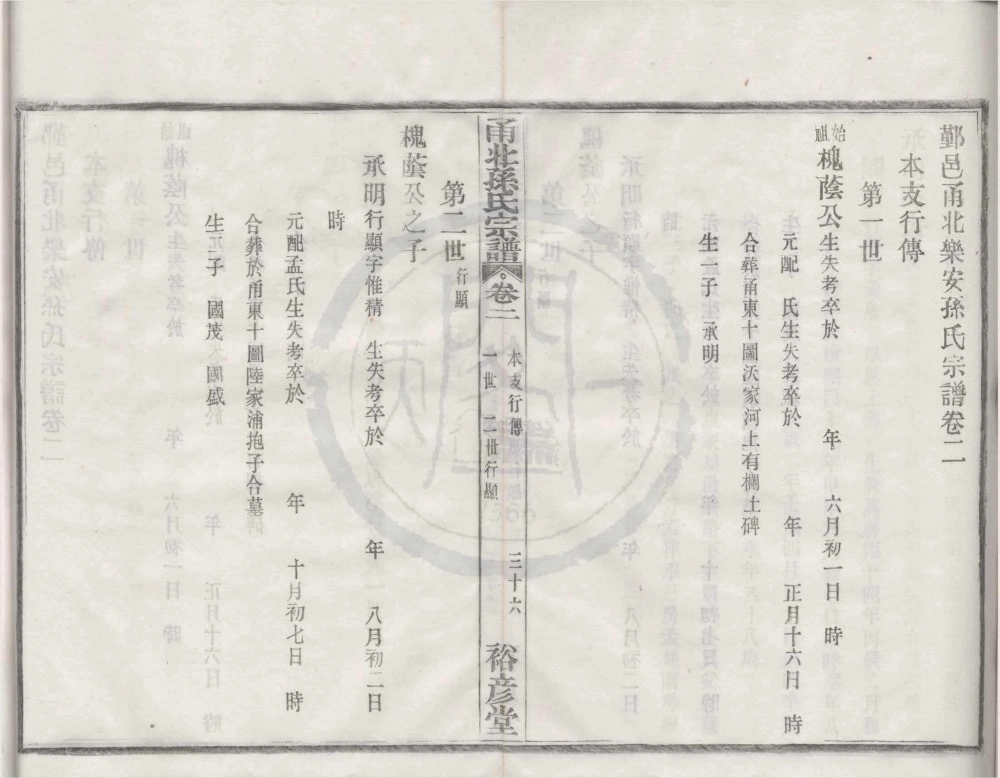 鄞邑甬北樂安孫氏宗譜卷二
本支行傳
第一世
始祖槐蔭公生失考卒於 年 六月初一日 時
元配 氏生失考卒於 年 正月十六日 時
合葬甬東十圖沃家河上有欄土碑
生一子 承明
甬北孫氏宗譜 卷二 本支行傳 一世 二世行顯 三十六 裕彥堂
第二世行顯
槐蔭公之子
承明行顯字惟精 生失考卒於 年 八月初二日
時
元配孟氏生失考卒於 年 十月初七日 時
合葬於甬東十圖陸家浦抱子合墓
生二子 國茂 國盛